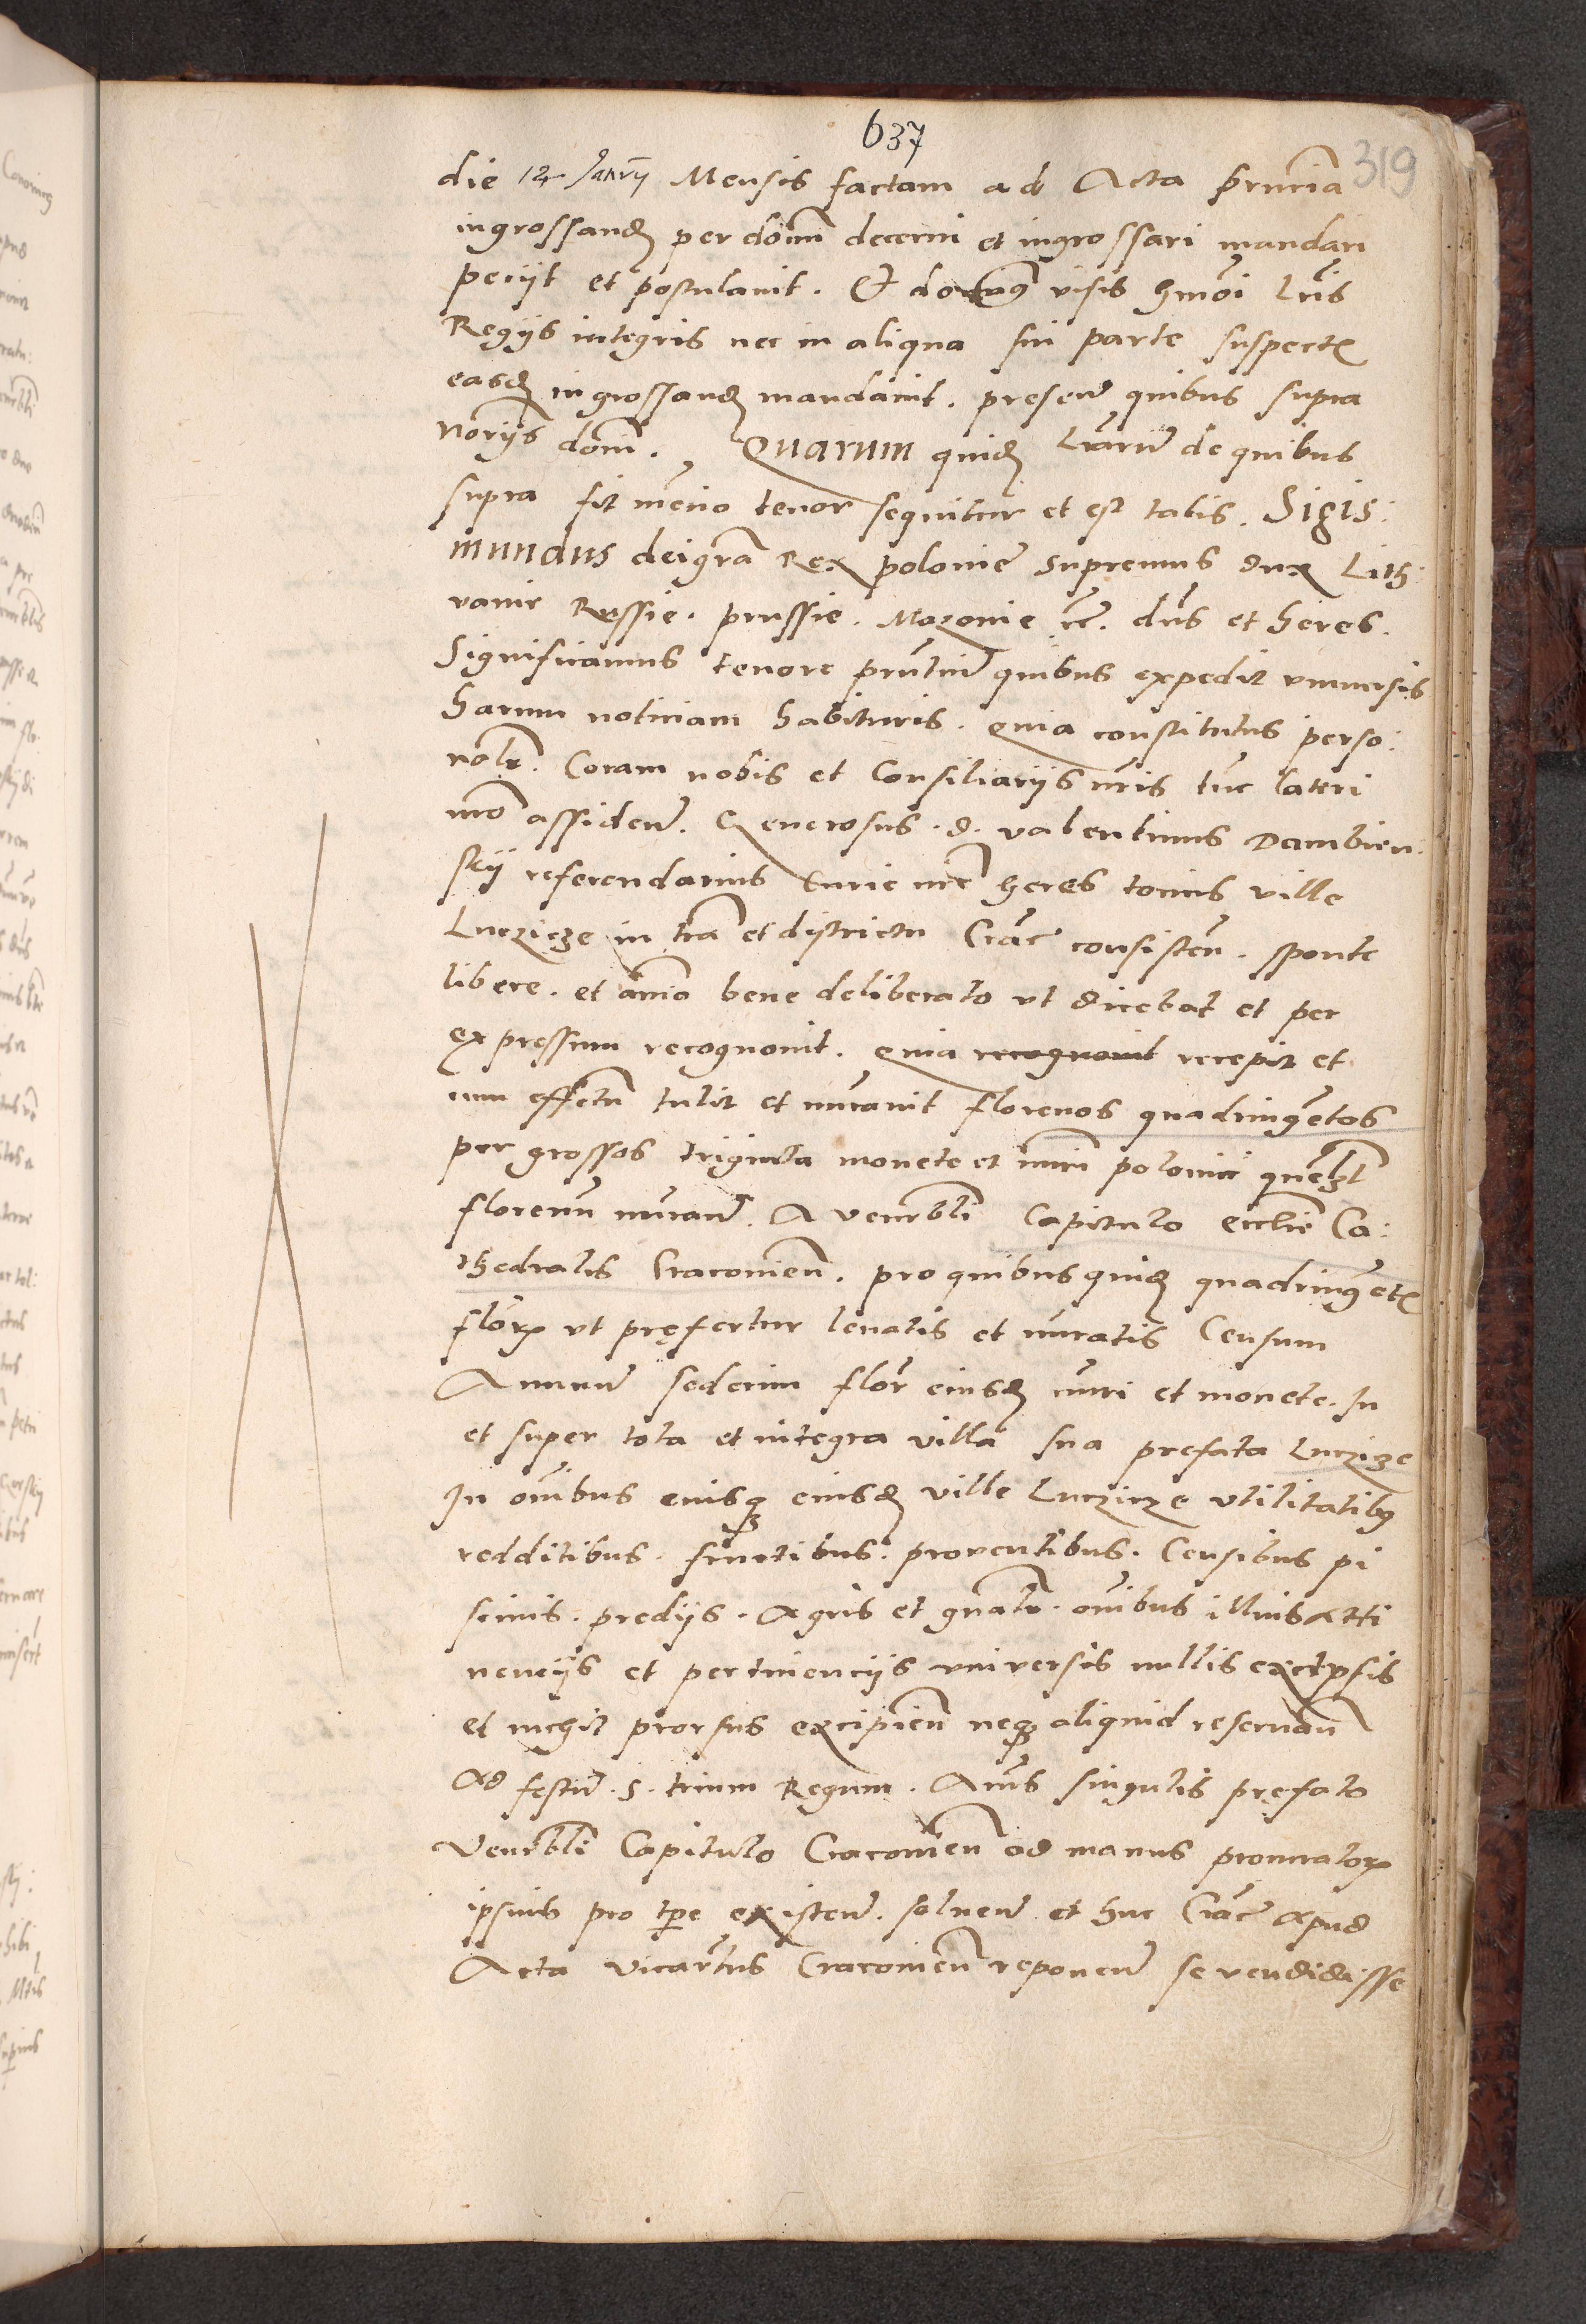 637
319
die 12 Janrij Mensis factam ad Acta prncia
ingrossand per domi decerni et ingrossari mandari
peciit et postulavit. Et dominus visis hmoi Lris
Regijs integris nec in aliqua sui parte suspectis
easdem ingrossand mandavit. presen quibus supra
Norijs domi. Quarum quidem Lrarum de quibus
supra fit mentio tenor sequitur et est talis. Sigis:
mundus dei gra Rex polonie Supremus dux Lith
vanie Russie. prussie. Mazovie etc. dns et heres.
Significamus tenore prntium quibus expedit vniuersis
harum notitiam habituris. quia constitutus perso:
nalr. Coram nobis et Consiliarijs nris tunc lateri
nro assiden. Generosus. d. valentinus Dambien:
skij referendarius Curie nre heres totius ville
Luczicze in tra et districtu Crac consisten. sponte
libere. et animo bene deliberato vt dicebat et per
expressum recognovit. quia recognovit recepit et
cum effectu tulit et nuravit florenos quadringentos
per grossos triginta monete et nri polonici quemlibet
florenum nuran. A venrbli Capitulo ecclie Ca:
thedralis Cracovien. pro quibusquidem quadringentis
flor vt prefertur levatis et nuratis Censum
Annuum sedecim flor eiusdem nuri et monete. In
et super tota et integra villa sua prefata Luczicze
In omnibus eiusque eiusdem ville Luczicze vtilitatibus
redditibus. fructibus. proventibus. Censibus pi
scinis. predijs. Agris et gnalr. omnibus illius Atti
nencijs et pertinencijs vniversis nullis exceptis
et nichil prorsus excipien neque aliquid reservan
Ad festum. S. trium Regum. Annis singulis prefato
Venrbli Capitulo Cracovien ad manus procurator
ipsius pro tpe existen. soluen et huc Crac Apud
Acta vicariatus Cracovien reponen se vendidisse